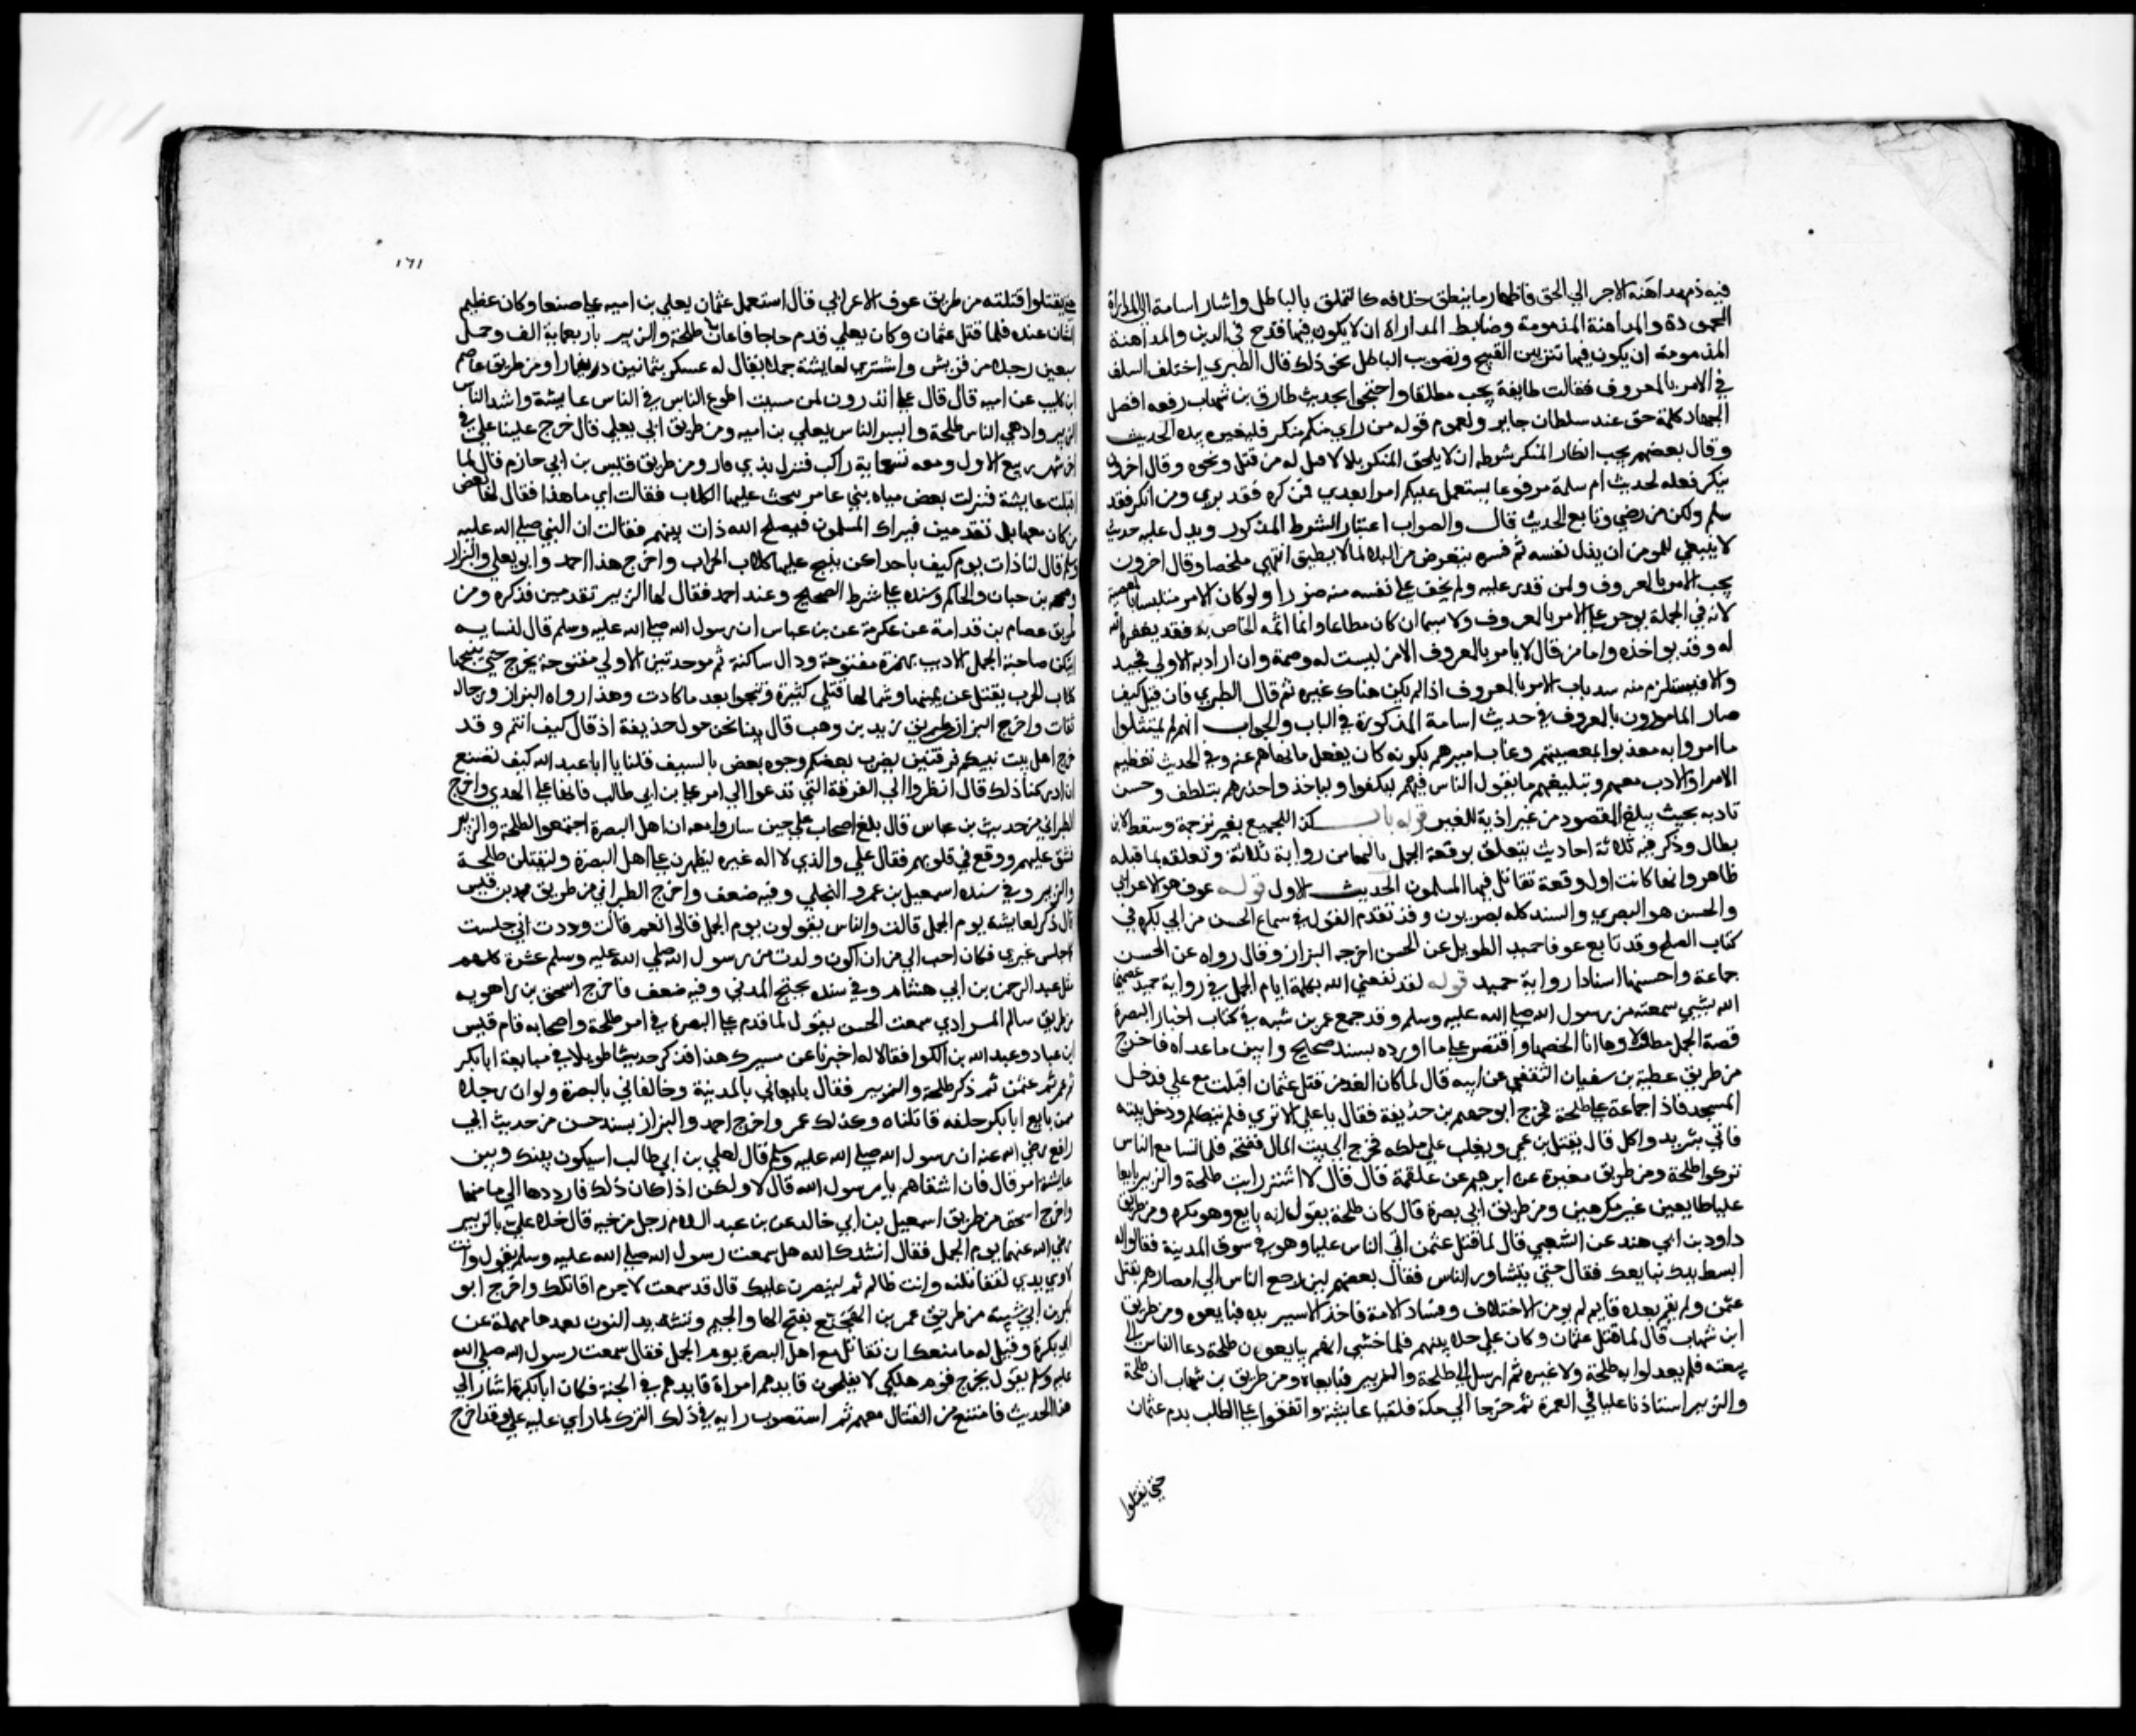 فيه ذم مداهنة الامرا في الحق واظهار ما يبطن خلافه كالتملق بالباطل واشار اسامة الى المداراة
المحمودة والمداهنة المذمومة وضابط المداراة ان لا يكون فيها قدح في الدين والمداهنة
المذمومة ان يكون فيها تزيين القبيح وتصويب الباطل نحو ذلك قال الطبري اختلف السلف
في الامر بالمعروف فقالت طايفة يجب مطلقا واحتجوا بحديث طارق بن شهاب رفعه افضل
الجهاد كلمة حق عند سلطان جاير ولعموم قوله من راى منكم منكرا فليغيره بيده الحديث
وقال بعضهم يجب انكار المنكر شرطه ان لا يلحق المنكر بلا لا قبل له من قتل ونحوه وقال اخرون
ينكر فعله لحديث ام سلمة مرفوعا يستعمل عليكم امرا بعدي فمن كره فقد بري ومن انكر فقد
سلم ولكن من رضي وتابع الحديث قال والصواب اعتبار الشرط المذكور ويدل عليه حديث
لا ينبغي للمومن ان يذل نفسه ثم فسره بتعرض من البلا لما لا يطيق انتهى ملخصا وقال اخرون
يجب الامر بالمعروف ولمن قدر عليه ولم يخف على نفسه منه ضررا ولو كان الامر متلبسا بالمعصية
لانه في الجملة يوجر على الامر بالمعروف ولا سيما ان كان مطاعا واما اثمه الخاص به فقد يغفره الله
له وقد يواخذه واما من قال لا يامر بالمعروف الا من ليست له وصمة وان اراد به الاولى فجيد
والا فيستلزم منه سد باب الامر بالمعروف اذا لم يكن هناك غيره ثم قال الطبري فان قيل كيف
صار المامورون بالمعروف في حديث اسامة المذكورة في الباب والجواب انهم لم يمتثلوا
ما امروا به معذبوا لمعصيتهم وعذاب اميرهم بكونه كان يفعل ما نهاهم عنه وفي الحديث تعظيم
الامرا والادب معهم وتبليغهم ما يقول الناس فيهم ليكفوا ولياخذوا حذرهم بتلطف وحسن
تادية بحيث يبلغ المقصود من غير اذية للغير قوله باب كذا للجميع بغير ترجمة وسقط لابن
بطال وذكر فيه ثلاثة احاديث يتعلق بوقعة الجمل ثالثها من رواية ثلاثة وتعلقه بما قبله
ظاهر وانها كانت اول وقعة تقاتل فيها المسلمون الحديث الاول قوله عوف هو الاعرابي
والحسن هو البصري والسند كله بصريون وقد تقدم القول في سماع الحسن من ابي بكرة في
كتاب الصلح وقد تابع عوفا حميد الطويل عن الحسن اخرجه البزار وقال رواه عن الحسن
جماعة واحسنها اسنادا رواية حميد قوله لقد نفعني الله بكلمة ايام الجمل في رواية حميد عصمني
الله بشيي سمعته من رسول الله صلى الله عليه وسلم وقد جمع عمر بن شبه في كتاب اخبار البصرة
قصة الجمل مطولا وها انا الخصها واقتصر على ما اورده بسند صحيح وابين ما عداه فاخرج
من طريق عطية بن سفيان الثقفي عن ابيه قال لما كان الغد من قتل عثمان اقبلت مع علي فدخل
المسجد فاذا جماعة على طلحة فخرج ابو جهم بن حذيفة فقال يا علي الا ترى فلم يتكلم ودخل بيته
فاتي بثريد واكل قال يقتل ابن عمي ويغلب على ملكه فخرج الى بيت المال ففتحه فلما تسامع الناس
تركوا طلحة ومن طريق مغيرة عن ابراهيم عن علقمة قال قال الاشتر رايت طلحة والزبير بايعا
عليا طايعين غير مكرهين ومن طريق ابي بصرة قال كان طلحة يقول انه بايع وهو مكره ومن طريق
داود بن ابي هند عن الشعبي قال لما قتل عثمن اتى الناس عليا وهو في سوق المدينة فقالوا له
ابسط يدك نبايعك فقال حتى يتشاور الناس فقال بعضهم لين رجع الناس الى امصارهم بقتل
عثمن ولم يقم بعده قايم لم يومن الاختلاف وفساد الامة فاخذ الاشتر بيده فبايعوه ومن طريق
ابن شهاب قال لما قتل عثمان وكان علي خلا بينهم فلما خشي انهم يبايعون طلحة دعا الناس الى
بيعته فلم يعدلوا به طلحة ولا غيره ثم ارسل الى طلحة والزبير فبايعاه ومن طريق بن شهاب ان طلحة
والزبير استاذنا عليا في العمرة ثم خرجا الى مكة فلقيا عايشة واتفقوا على الطلب بدم عثمان
حتى يقتلوا
١٦١
حتى يقتلوا قتلته من طريق عوف الاعرابي قال استعمل عثمان يعلي بن اميه على صنعا وكان عظيم
الشان عنده فلما قتل عثمان وكان يعلي قدم حاجا فاعان طلحة والزبير باربعماية الف وحمل
سبعين رجلا من قريش واشترى لعايشة جملا يقال له عسكر بثمانين دينارا ومن طريق عاصم
ابن كليب عن ابيه قال قال علي اتدرون لمن مسيت اطوع الناس في الناس عايشة واشد الناس
الزبير وادهى الناس طلحة وايسر الناس يعلي بن اميه ومن طريق ابي يعلي قال خرج علينا علي في
اخر شهر ربيع الاول ومعه تسعماية راكب فنزل بذي قار ومن طريق قيس بن ابي حازم قال لما
اقبلت عايشة فنزلت بعض مياه بني عامر نبحت عليها الكلاب فقالت اي ما هذا فقال لها بعض
من كان معها بل تقدمين فيراك المسلمون فيصلح الله ذات بينهم فقالت ان النبي صلى الله عليه
وسلم قال لنا ذات يوم كيف باحداكن ينبح عليها كلاب الحواب واخرج هذا احمد وابو يعلي والبزار
وصححه بن حبان والحاكم وسنده على شرط الصحيح وعند احمد فقال لها الزبير تقدمين فذكره ومن
طريق عصام بن قدامة عن عكرمة عن بن عباس ان رسول الله صلى الله عليه وسلم قال لنسايه
ايتكن صاحبة الجمل الادبب بهمزة مفتوحة ودال ساكنة ثم موحدتين الاولى مفتوحة يخرج حتى ينبحها
كلاب الحوب يقتل عن يمينها وشمالها قتلى كثيرة وتنجوا بعد ما كادت وهذا رواه البزار ورجاله
ثقات واخرج البزار من طريق زيد بن وهب قال بينا نحن حول حذيفة اذ قال كيف انتم وقد
خرج اهل بيت نبيكم فرقتين يضرب بعضكم وجوه بعض بالسيف قلنا يا ابا عبد الله كيف نصنع
ان ادركنا ذلك قال انظروا الى الفرقة التي تدعوا الى امر علي بن ابي طالب فانها على الهدى واخرج
الطبراني من حديث بن عباس قال بلغ اصحاب علي حين ساروا معه ان اهل البصرة اجتمعوا لطلحة والزبير
فشق عليهم ووقع في قلوبهم فقال علي والذي لا اله غيره ليظهرن على اهل البصرة وليقتلن طلحة
والزبير وفي سنده اسمعيل بن عمرو البجلي وفيه ضعف واخرج الطبراني من طريق محمد بن قيس
قال ذكر لعايشة يوم الجمل قالت والناس يقولون يوم الجمل قالوا نعم قالت وددت اني جلست
كما جلس غيري فكان احب الي من ان اكون ولدت من رسول الله صلى الله عليه وسلم عشرة كلهم
مثل عبد الرحمن بن ابي هشام وفي سنده نجيح المدني وفيه ضعف فاخرج اسحق بن راهويه
من طريق سالم المرادي سمعت الحسن يقول لما قدم علي البصرة في امر طلحة واصحابه قام قيس
ابن عباد وعبد الله بن الكوا فقالا له اخبرنا عن مسيرك هذا فذكر حديثا طويلا في مبايعة ابا بكر
ثم عمر ثم عثمن ثم ذكر طلحة والزبير فقال بايعاني بالمدينة وخالفاني بالبصرة ولو ان رجلا
ممن بايع ابا بكر خلفه قاتلناه وكذلك عمر واخرج احمد والبزار بسند حسن من حديث ابي
رافع رضي الله عنه ان رسول الله صلى الله عليه وسلم قال لعلي بن ابي طالب اسيكون بينك وبين
عايشة امر قال فان اشقاهم يا رسول الله قال لا ولكن اذا كان ذلك فارددها الى مامنها
واخرج اسحق من طريق اسمعيل بن ابي خالد عن بن عبد السلام رجل من حيه قال خلا علي بالزبير
رضي الله عنهما يوم الجمل فقال انشدك الله هل سمعت رسول الله صلى الله عليه وسلم يقول وانت
لاوي يدي لتقاتلنه وانت ظالم ثم لينصرن عليك قال قد سمعت لا جرم اقاتلك واخرج ابو
بكر بن ابي شيبة من طريق عمر بن الهجنع بفتح الها والجيم وتشديد النون بعدها مهملة عن
ابي بكرة وقيل له ما منعك ان تقاتل مع اهل البصرة يوم الجمل فقال سمعت رسول الله صلى الله
عليه وسلم يقول يخرج قوم هلكى لا يفلحون قايدهم امراة قايدهم في الجنة فكان ابا بكرة اشار الى
هذا الحديث فامتنع من القتال معهم ثم استصوب رايه في ذلك الترك لما راى عليه علي وقد اخرج